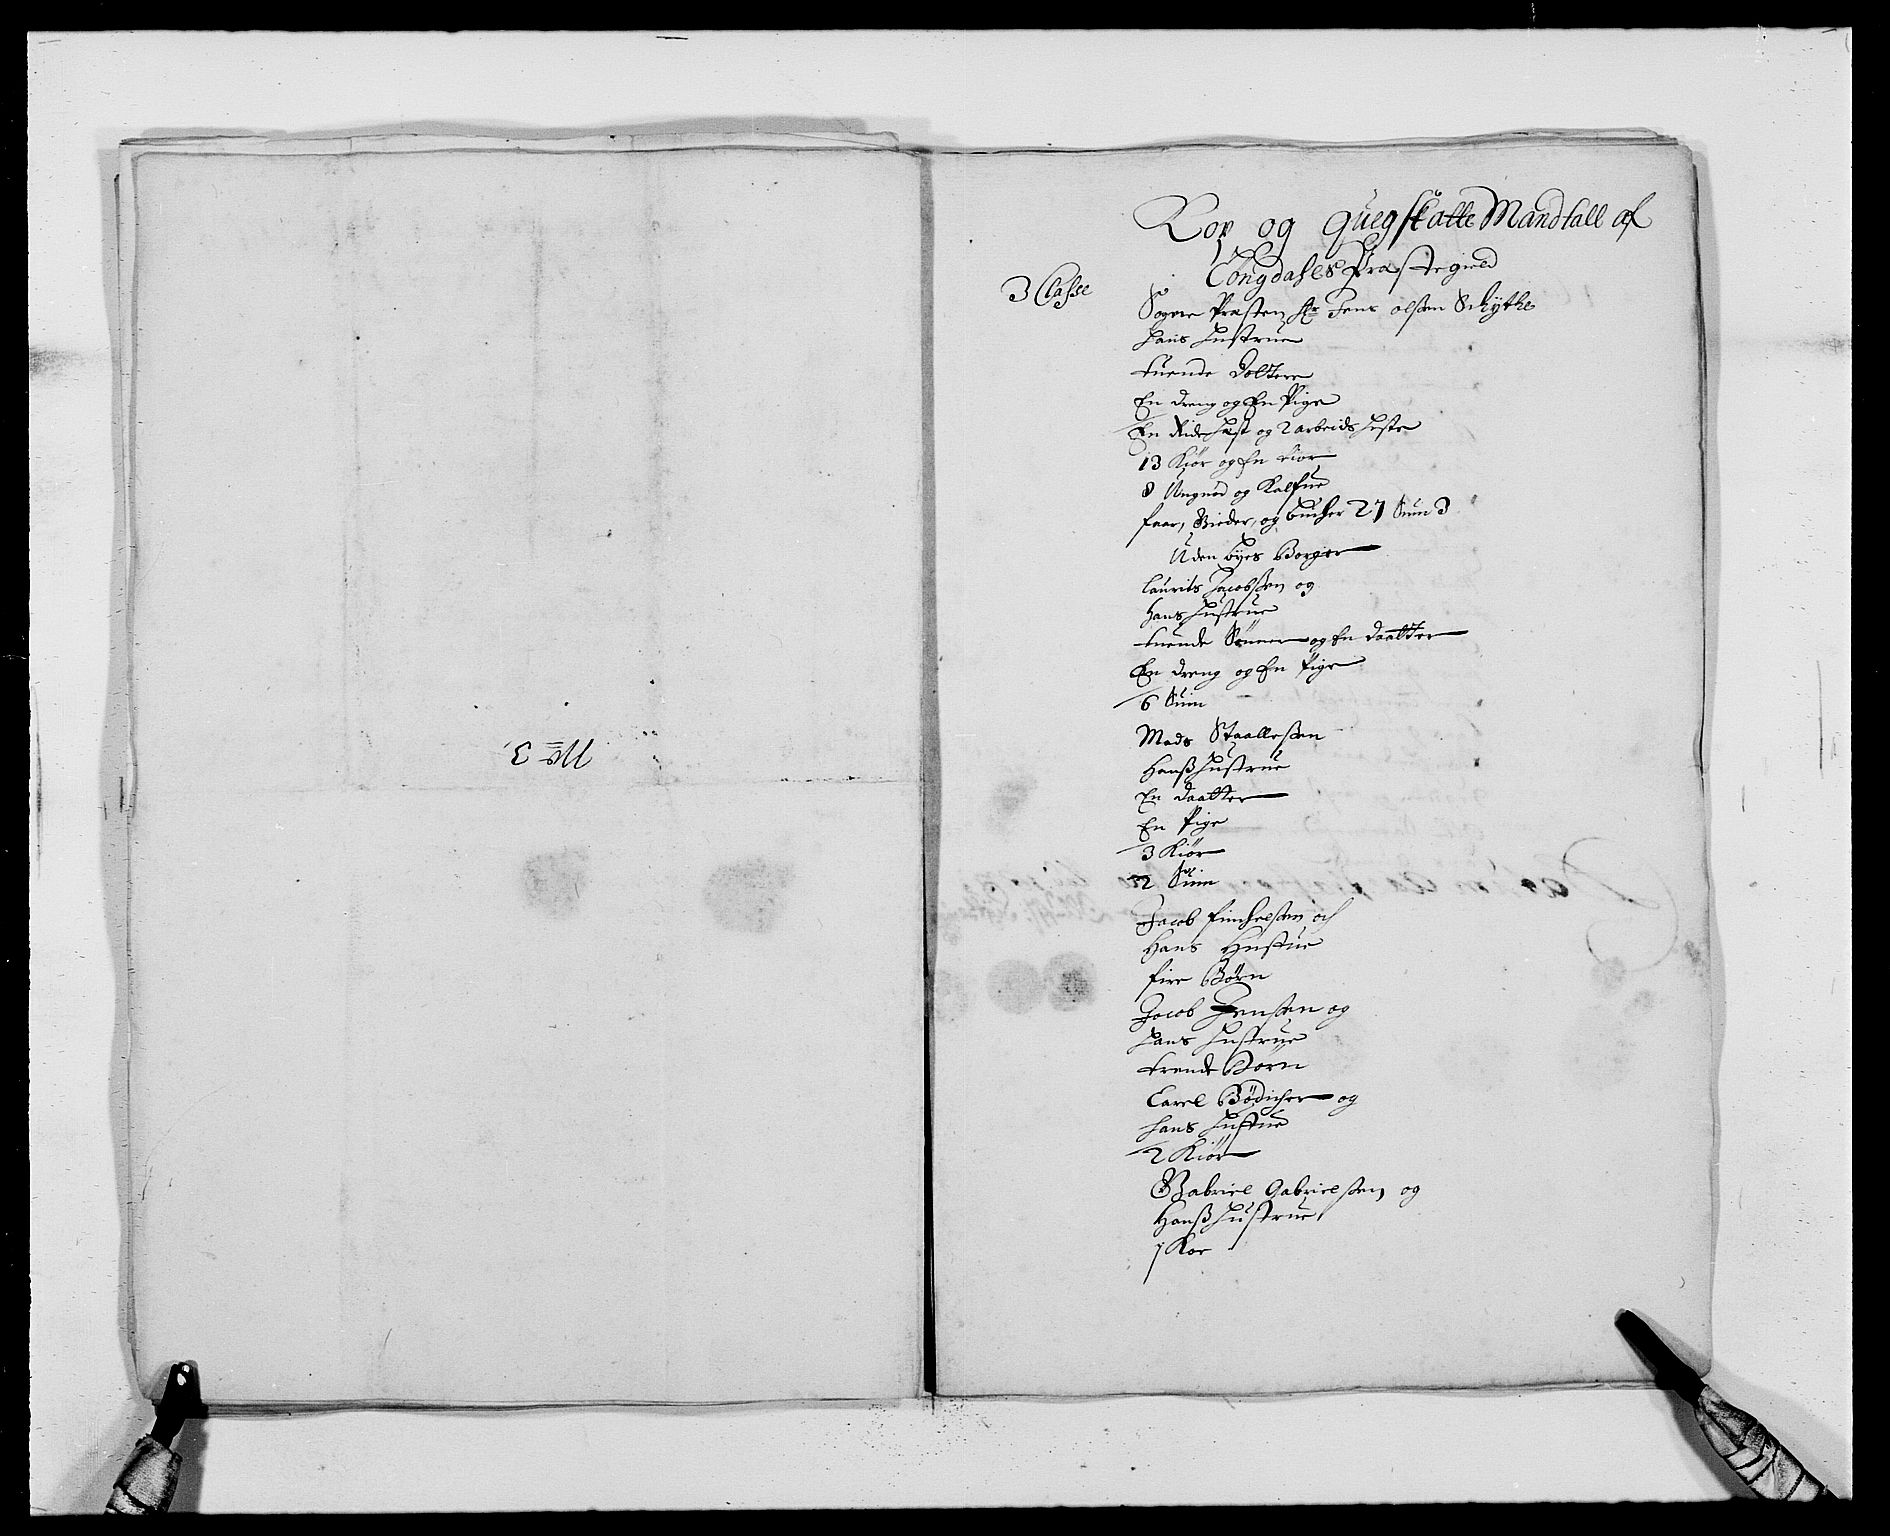 No 3.
Kop og Quegskatte Mandtall af
Tongdahls Præstegield
3 Classe
Sogne Præsten Hr Jens olsen Schÿthe
Hans Hustrue
tuende Døttere
En dreng og En Pige
En Ride Hæst og 2 arbeids Heste
13 Kiør og En tior
8 Ungnød og Kalfue
faar, Gieder, og bucher 27 Suin 3
Uden byes Borger
Laurits Jacobsen og
Hans Hustrue
tuende Sønner og En daatter
En dreng og En Pige
6 Suin
Mads Staallesen
Hanß Hustrue
En daatter
En Pige
3 Kiør
2 Suin
Jacob Finchelsen och
Hans Hustue
fire Børn
Jacob Jensen og
Hans Hustrue
trende Børn
Carel Bødicher og
Hans Hustue
2 Kiør
Gabriel Gabrielsen og
Hanß Hustrue
1 Koe